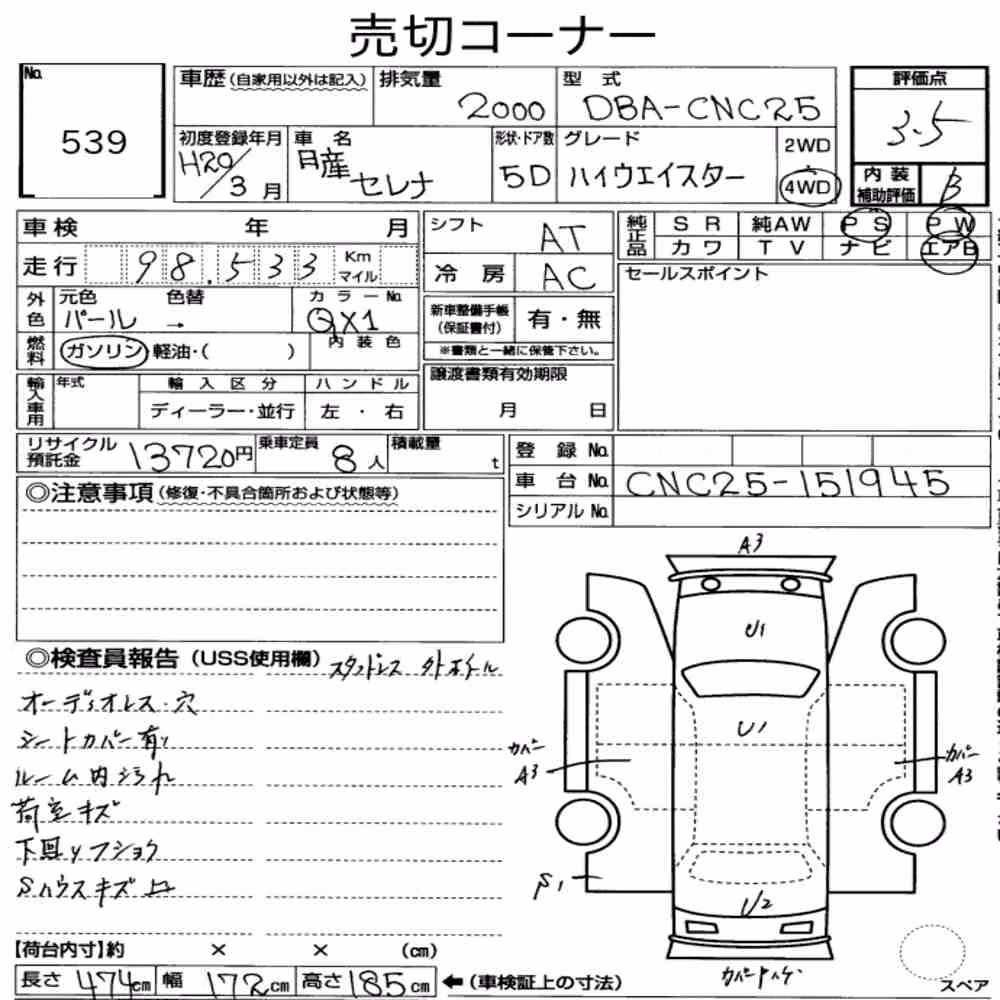 売切コーナー
No.
539
車歴 (自家用以外は記入)
排気量
2000
型 式
DBA-CNC25
評価点
3.5
初度登録年月
H20/3月
車 名
日産
セレナ
形状・ドア数
5D
グレード
ハイウエイスター
2WD
4WD
内 装
補助評価
B
車検 年 月
走行 98,533 Km マイル
シフト
AT
冷 房
AC
純正品
S R 純AW P S P W
カ ワ T V ナ ビ エアB
セールスポイント
外色
元色 色替
パール →
カラーNo.
QX1
新車整備手帳
(保証書付)
有・無
※書類と一緒に保管下さい。
燃料
ガソリン・軽油・( )
内 装 色
輸入車用
年式
輸 入 区 分
ディーラー・並行
ハ ン ド ル
左 ・ 右
譲渡書類有効期限
月 日
リサイクル
預託金
13720円
乗車定員
8人
積載量
t
登 録 No.
車 台 No. CNC25-151945
シリアル No.
◎注意事項 (修復・不具合箇所および状態等)
◎検査員報告 (USS使用欄)
オーディオレス・穴
シートカバー有り
ルーム内汚れ
荷室キズ
下回りフショク
A3
U1
U1
カバー
A3
カバー
A3
U2
【荷台内寸】約 × × (cm)
長さ 474cm 幅 172cm 高さ 185cm ←(車検証上の寸法)
スペア